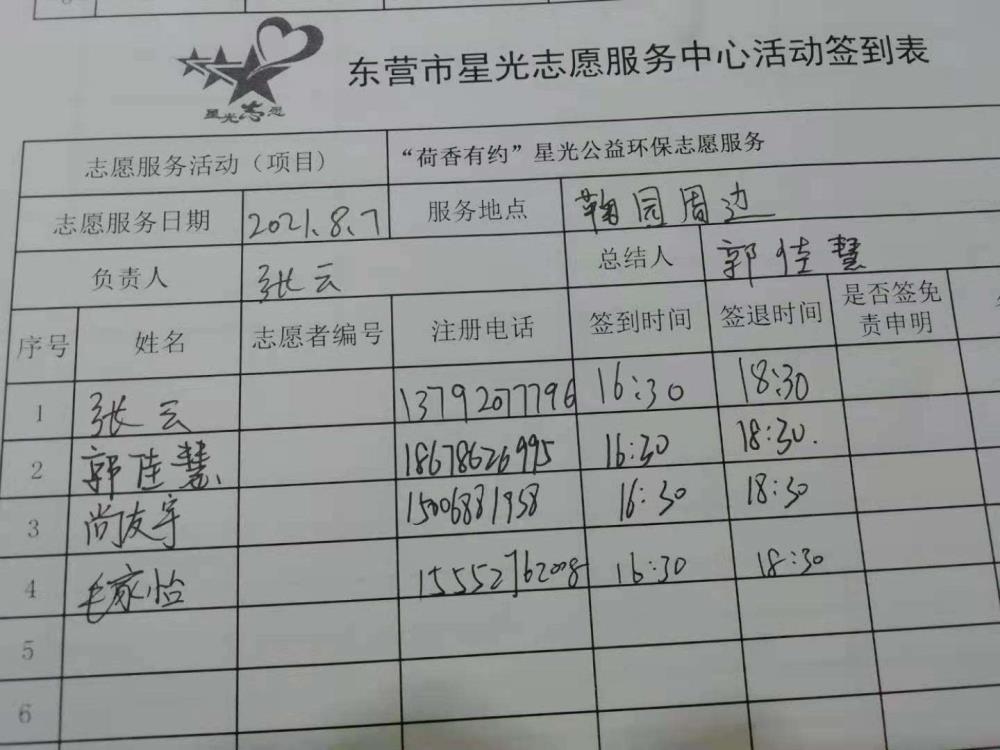 东营市星光志愿服务中心活动签到表
星光志愿
志愿服务活动（项目） “荷香有约”星光公益环保志愿服务
志愿服务日期 2021.8.7 服务地点 鞠园周边
负责人 张云 总结人 郭佳慧
序号 姓名 志愿者编号 注册电话 签到时间 签退时间 是否签免责申明
1 张云 13792077796 16:30 18:30
2 郭佳慧 18678626995 16:30 18:30.
3 尚友宇 15006881958 16:30 18:30
4 毛家怡 15552762008 16:30 18:30
5
6